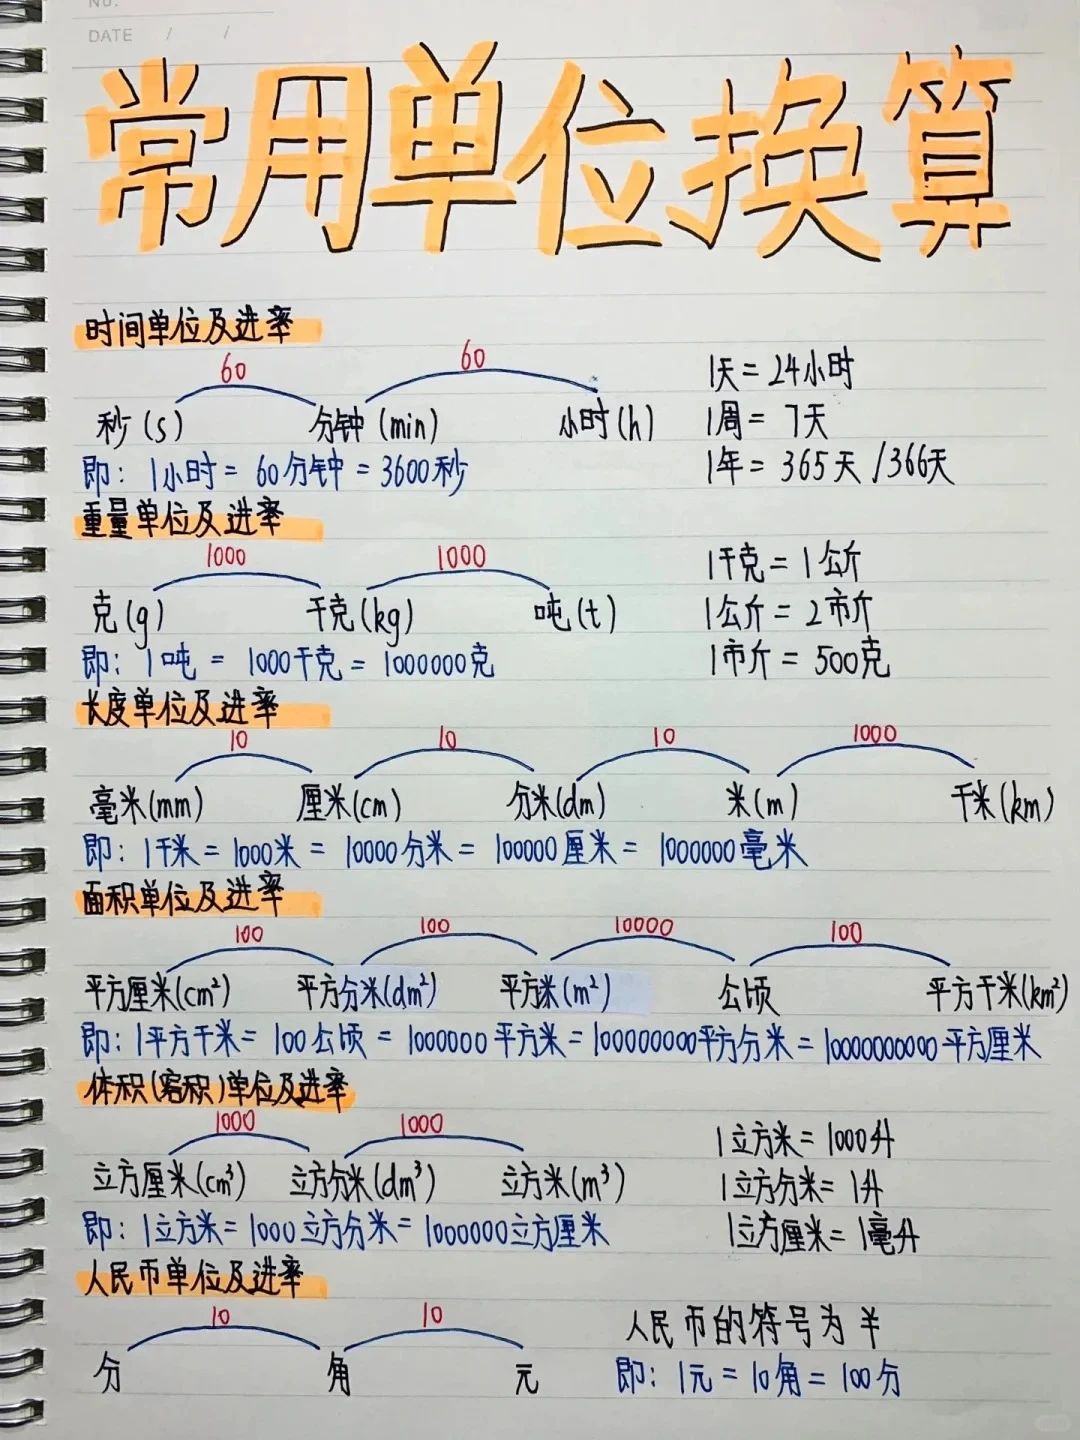 NO.
DATE / /
常用单位换算
时间单位及进率
60 60
秒(s) 分钟(min) 小时(h)
即: 1小时 = 60分钟 = 3600秒
1天 = 24小时
1周 = 7天
1年 = 365天/366天
重量单位及进率
1000 1000
克(g) 千克(kg) 吨(t)
即: 1吨 = 1000千克 = 1000000克
1千克 = 1公斤
1公斤 = 2市斤
1市斤 = 500克
长度单位及进率
10 10 10 1000
毫米(mm) 厘米(cm) 分米(dm) 米(m) 千米(km)
即: 1千米 = 1000米 = 10000分米 = 100000厘米 = 1000000毫米
面积单位及进率
100 100 10000 100
平方厘米(cm²) 平方分米(dm²) 平方米(m²) 公顷 平方千米(km²)
即: 1平方千米 = 100公顷 = 1000000平方米 = 100000000平方分米 = 10000000000平方厘米
体积(容积)单位及进率
1000 1000
立方厘米(cm³) 立方分米(dm³) 立方米(m³)
即: 1立方米 = 1000立方分米 = 1000000立方厘米
1立方米 = 1000升
1立方分米 = 1升
1立方厘米 = 1毫升
人民币单位及进率
10 10
分 角 元
人民币的符号为¥
即: 1元 = 10角 = 100分